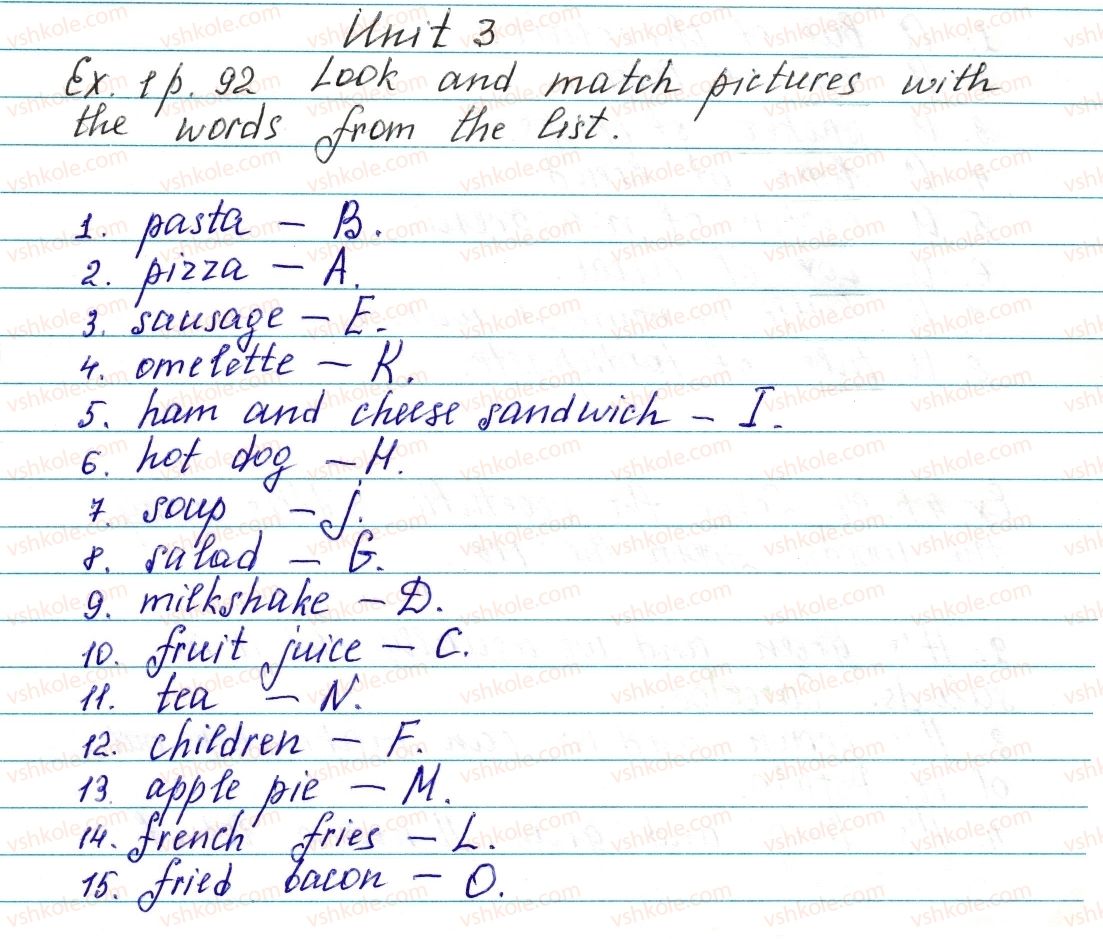 Unit 3
Ex. 1 p. 92 Look and match pictures with
the words from the list.
1. pasta – B.
2. pizza – A.
3. sausage – E.
4. omelette – K.
5. ham and cheese sandwich – I.
6. hot dog – H.
7. soup – J.
8. salad – G.
9. milkshake – D.
10. fruit juice – C.
11. tea – N.
12. children – F.
13. apple pie – M.
14. french fries – L.
15. fried bacon – O.
vshkole.com